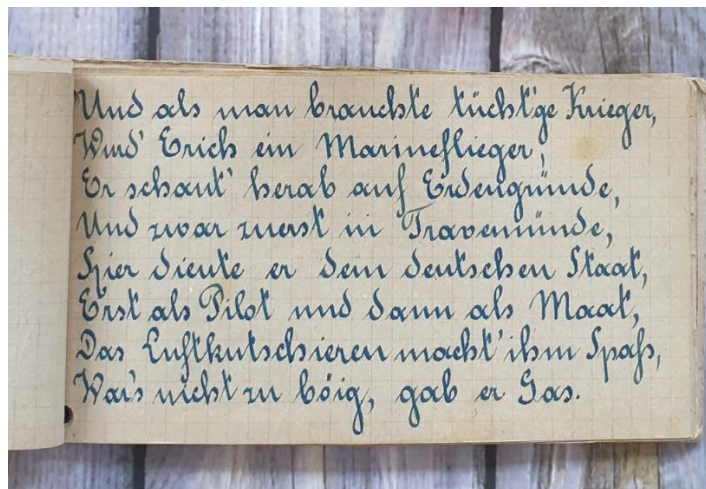 Und als man brauchte tücht'ge Krieger,
Wurd' Erich ein Marineflieger,
Er schaut' herab auf Erdengründe,
Und zwar zuerst in Travemünde,
Hier diente er dem deutschen Staat,
Erst als Pilot und dann als Maat,
Das Luftkutschieren macht' ihm Spaß,
War's nicht zu böig, gab er Gas.